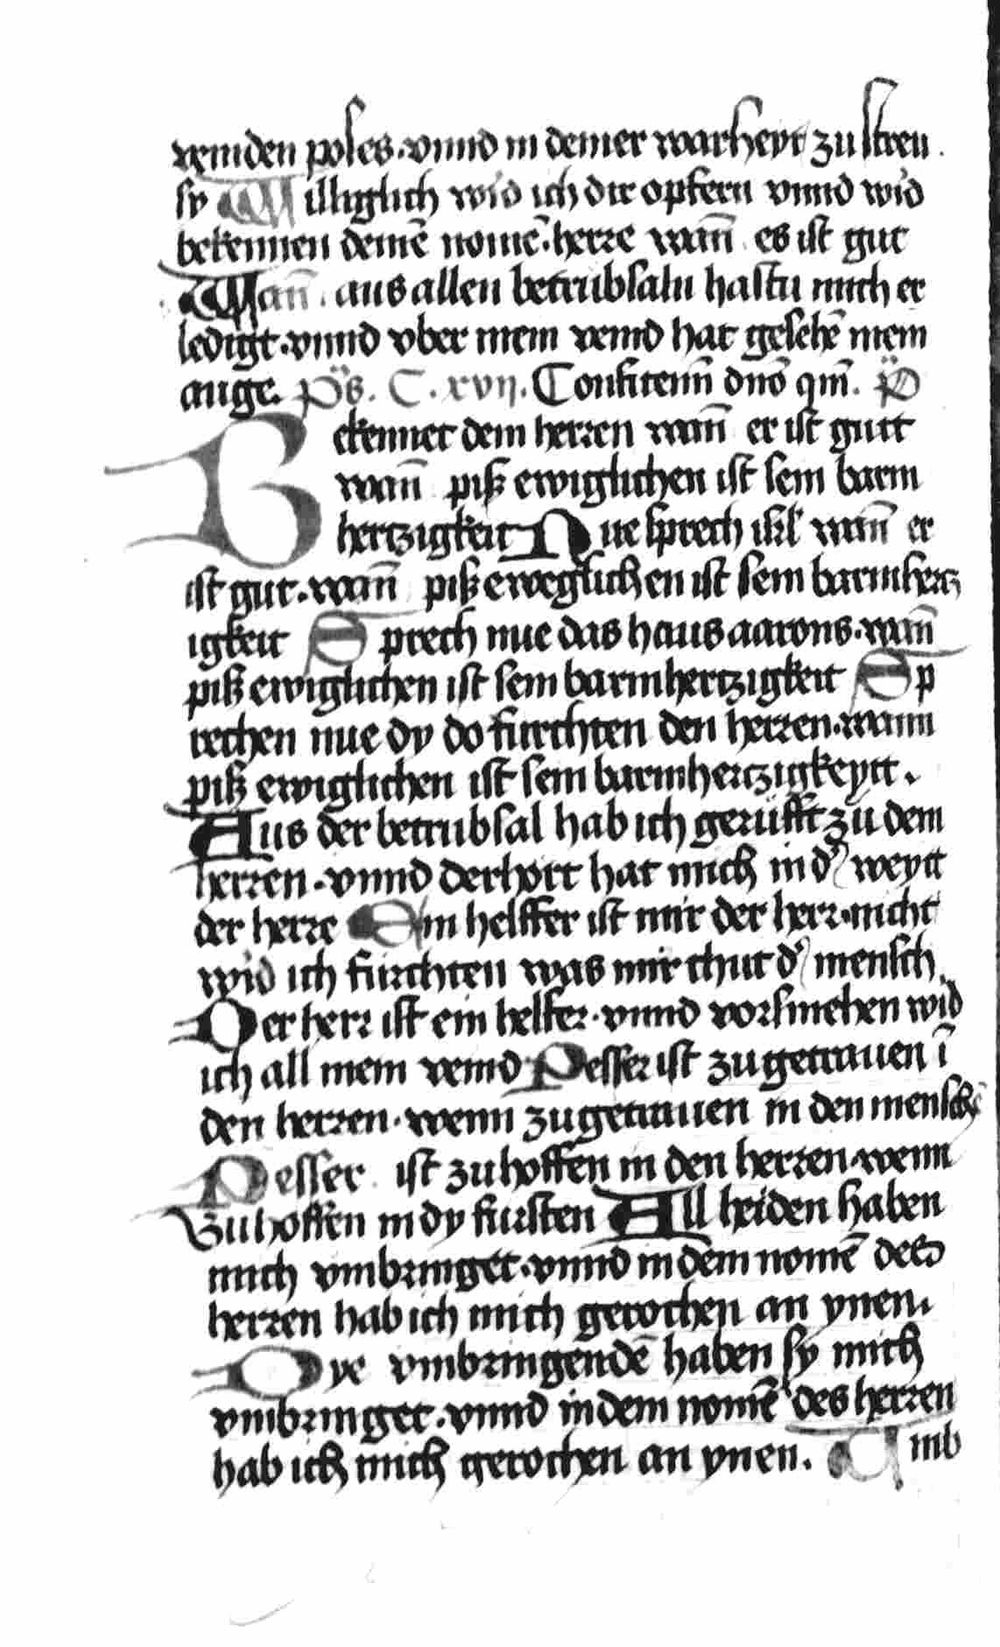 veinden poses · vnnd in deiner warheyt zu streu
sy Williglich wid ich dir opfern vnnd wid
bekennen deinē nomē · herre wañ es ist gut
Wañ aus allen betrubsaln hastu mich er
ledigt · vnnd vber mein veind hat gesehē mein
auge. Ps. C. xvij. Confitemī dnō qm̄. P
Bekennet dem herren wañ er ist gutt
wañ piß ewiglichen ist sein barm
hertzigkeit Nue sprech isrl wañ er
ist gut · wañ piß eweglichen ist sein barmhertz
igkeit Sprech nue das haus aarons · wañ
piß ewiglichen ist sein barmhertzigkeit Sp
rechen nue dy do furchten den herren · wann
piß ewiglichen ist sein barmhertzigkeytt.
Aus der betrubsal hab ich gerufft zu dem
herren · vnnd derhort hat mich in d' weytt
der herre Ein helffer ist mir der herr · nicht
wid ich furchten was mir thut d' mensch
Der herr ist ein helfer · vnnd vorsmehen wid
ich all mein veind Pesser ist zu getrauen ī
den herren · wenn zu getrauen in den menschē
Pesser ist zu hoffen in den herren · wenn
Zu hoffen in dy fursten All heiden haben
mich vmbringet · vnnd in dem nomē des
herren hab ich mich gerochen an ynen.
Dye vmbringendē haben sy mich
vmbringet · vnnd in dem nomē des herren
hab ich mich gerochen an ynen. Umb